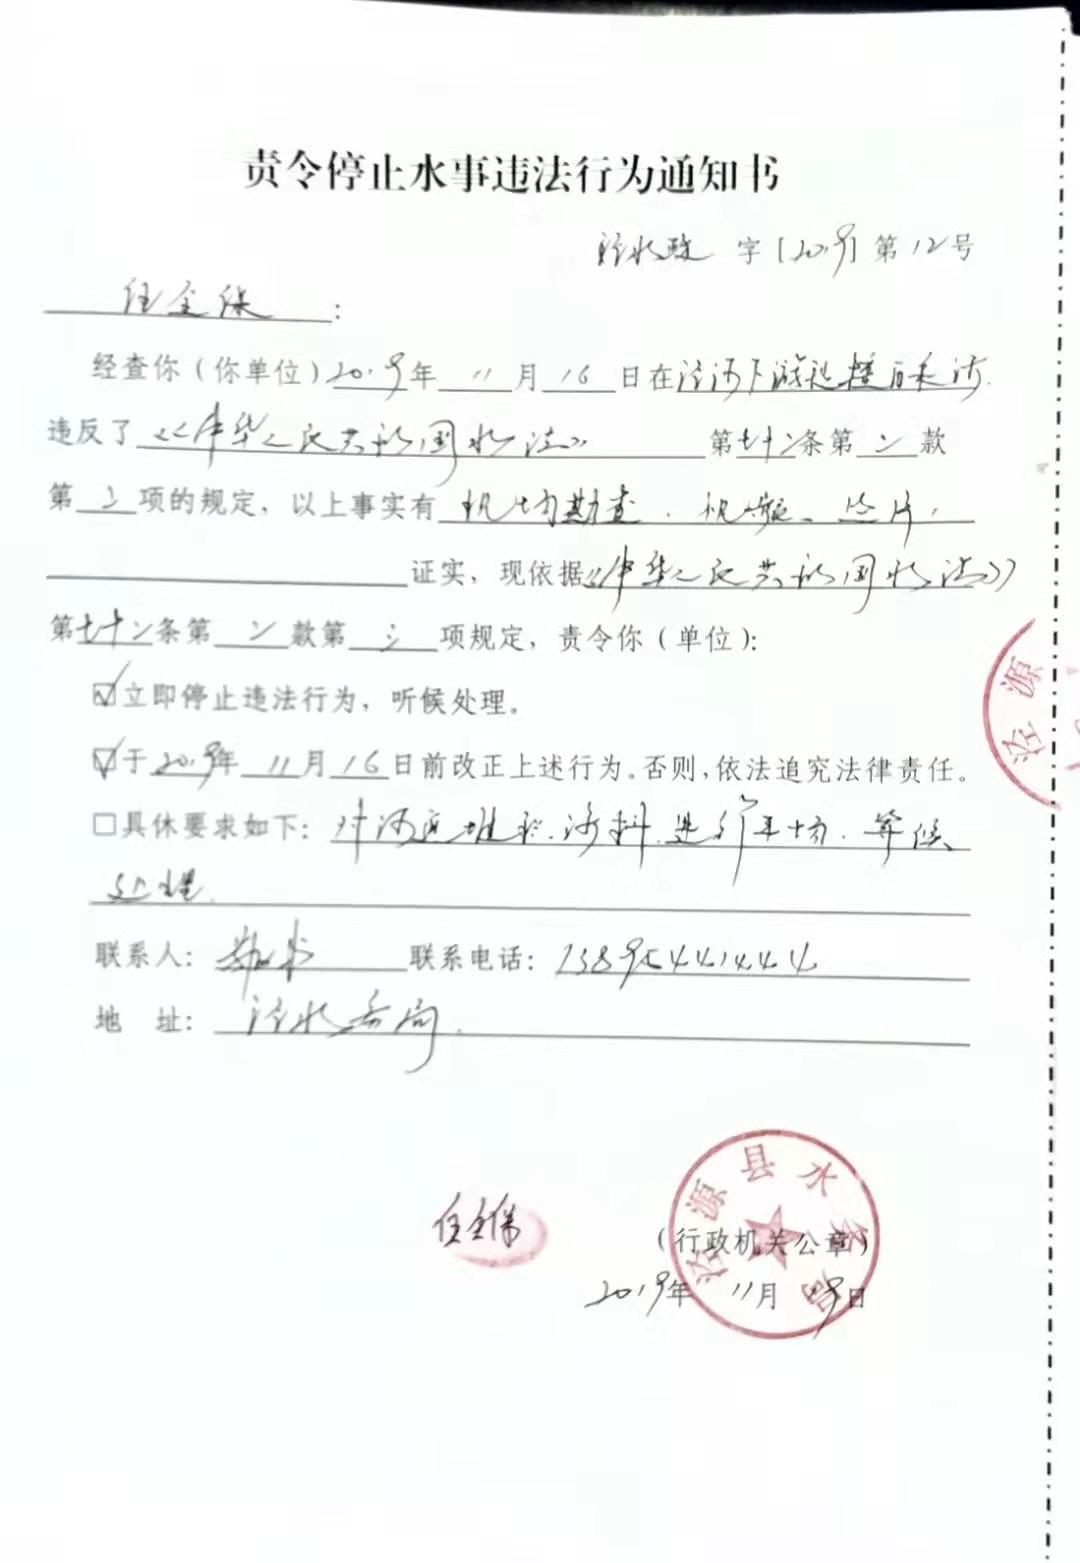 责令停止水事违法行为通知书
泾水政 字[2019]第12号
任全保:
经查你(你单位)2019年11月16日在泾河下游 采沙
违反了《中华人民共和国水法》第七十二条第二款
第二项的规定,以上事实有 现场勘查、照片,
证实,现依据《中华人民共和国水法》
第七十二条第二款第 项规定,责令你(单位):
☑立即停止违法行为,听候处理。
☑于2019年11月16日前改正上述行为。否则,依法追究法律责任。
□具休要求如下:对河道堆积沙料进行 场.等候
处理.
联系人: 联系电话:13895441444
地 址:泾水务局.
泾源
任全保
泾源县水务局
(行政机关公章)
2019年11月19日